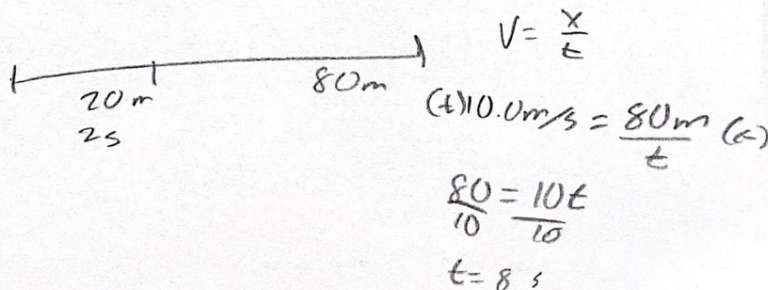 20m 80m
2s
V = x/t
(t)10.0m/s = 80m/t (t)
80/10 = 10t/10
t = 8 s